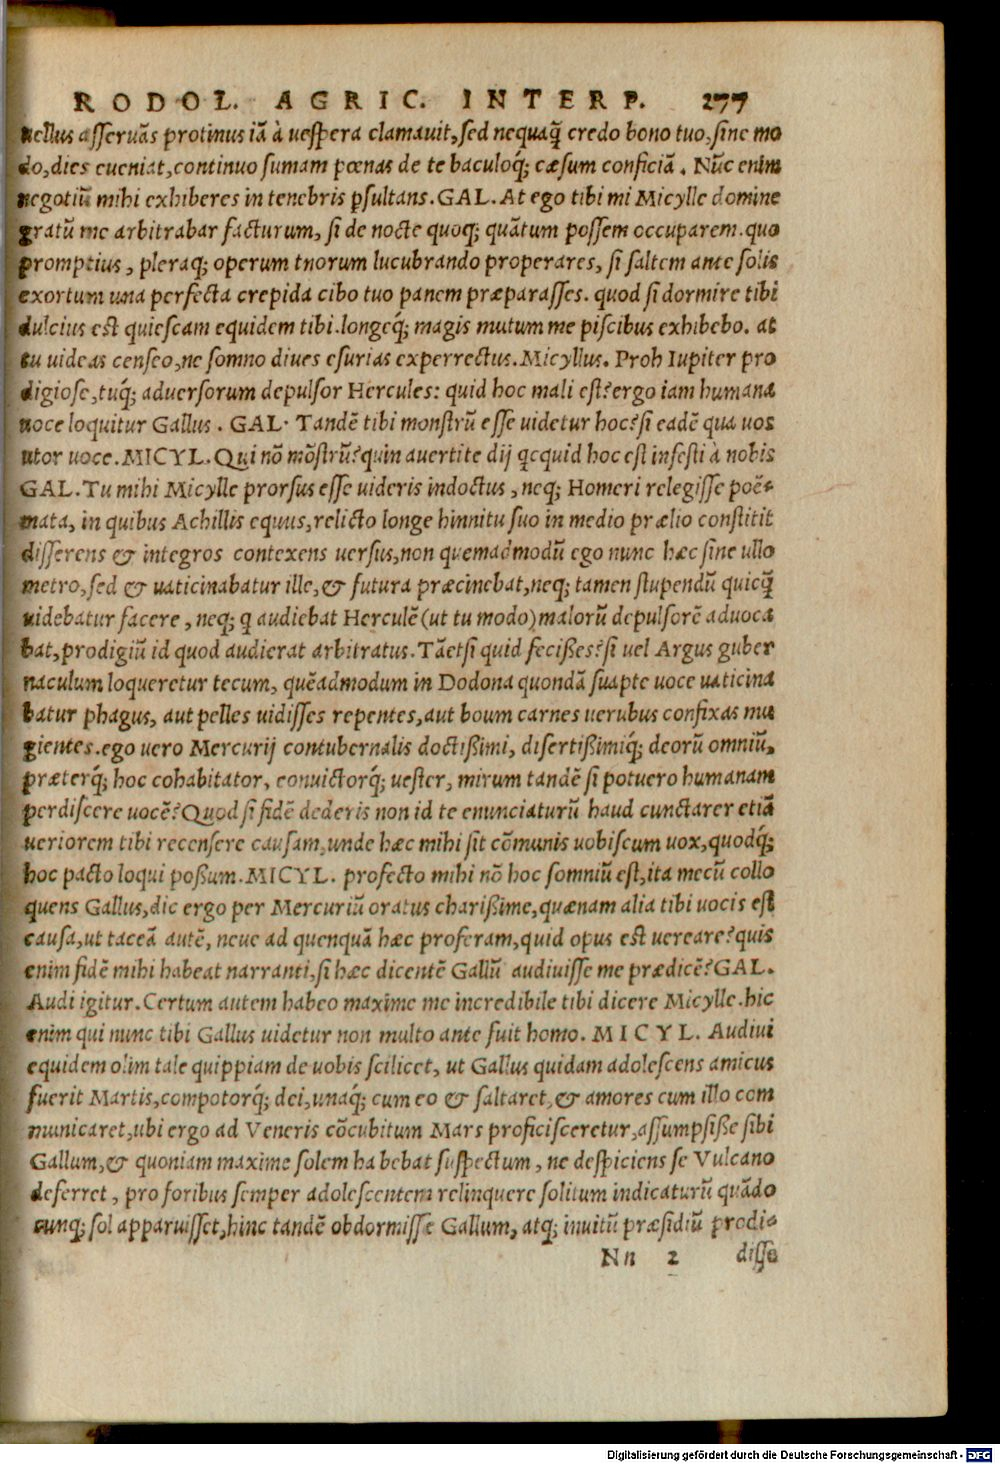 RODOL. AGRIC. INTERP. 277
uellus asseruãs protinus iã à uespera clamauit, sed nequaq̃ credo bono tuo, sine mo
do, dies eueniat, continuo sumam pœnas de te baculoq́; cæsum conficiã. Nũc enim
negotiũ mihi exhiberes in tenebris ꝑsultans. GAL. At ego tibi mi Micylle domine
gratũ me arbitrabar facturum, si de nocte quoq; quãtum possem occuparem. quo
promptius, pleraq; operum tuorum lucubrando properares, si saltem ante solis
exortum una perfecta crepida cibo tuo panem præparasses. quod si dormire tibi
dulcius est quiescam equidem tibi. longeq́; magis mutum me piscibus exhibebo. at
tu uideas censeo, ne somno diues esurias experrectus. Micyllus. Proh Iupiter pro
digiose, tuq́; aduersorum depulsor Hercules: quid hoc mali est? ergo iam humana
uoce loquitur Gallus. GAL. Tandẽ tibi monstrũ esse uidetur hoc? si eadẽ qua uos
utor uoce. MICYL. Qui nõ mõstrũ? quin auertite dij qcquid hoc est infesti à nobis
GAL. Tu mihi Micylle prorsus esse uideris indoctus, neq; Homeri relegisse poë-
mata, in quibus Achillis equus, relicto longe hinnitu suo in medio prælio constitit
disserens & integros contexens uersus, non quemadmodũ ego nunc hæc sine ullo
metro, sed & uaticinabatur ille, & futura præcinebat, neq; tamen stupendũ quicq̃
uidebatur facere, neq; q audiebat Herculẽ (ut tu modo) malorũ depulsorẽ aduoca
bat, prodigiũ id quod audierat arbitratus. Tãetsi quid fecißes? si uel Argus guber
naculum loqueretur tecum, quẽadmodum in Dodona quondã suapte uoce uaticina
batur phagus, aut pelles uidisses repentes, aut boum carnes uerubus confixas mu
gientes. ego uero Mercurij contubernalis doctißimi, disertißimiq́; deorũ omniũ,
præterq́; hoc cohabitator, conuictorq́; uester, mirum tandẽ si potuero humanam
perdiscere uocẽ? Quod si fidẽ dederis non id te enunciaturũ haud cunctarer etiã
ueriorem tibi recensere causam, unde hæc mihi sit cõmunis uobiscum uox, quodq́;
hoc pacto loqui poßum. MICYL. profecto mihi nõ hoc somniũ est, ita mecũ collo
quens Gallus, dic ergo per Mercuriũ oratus charißime, quænam alia tibi uocis est
causa, ut taceã autẽ, neue ad quenquã hæc proferam, quid opus est uereare? quis
enim fidẽ mihi habeat narranti, si hæc dicentẽ Gallũ audiuisse me prædicẽ? GAL.
Audi igitur. Certum autem habeo maxime me incredibile tibi dicere Micylle. hic
enim qui nunc tibi Gallus uidetur non multo ante fuit homo. MICYL. Audiui
equidem olim tale quippiam de uobis scilicet, ut Gallus quidam adolescens amicus
fuerit Martis, compotorq́; dei, unaq́; cum eo & saltaret, & amores cum illo com
municaret, ubi ergo ad Veneris cõcubitum Mars proficisceretur, assumpsiße sibi
Gallum, & quoniam maxime solem habebat suspectum, ne despiciens se Vulcano
deferret, pro foribus semper adolescentem relinquere solitum indicaturũ quãdo
cunq; sol apparuisset, hinc tandẽ obdormisse Gallum, atq; inuitũ præsidiũ prodi-
Nn 2 disse
Digitalisierung gefördert durch die Deutsche Forschungsgemeinschaft - DFG